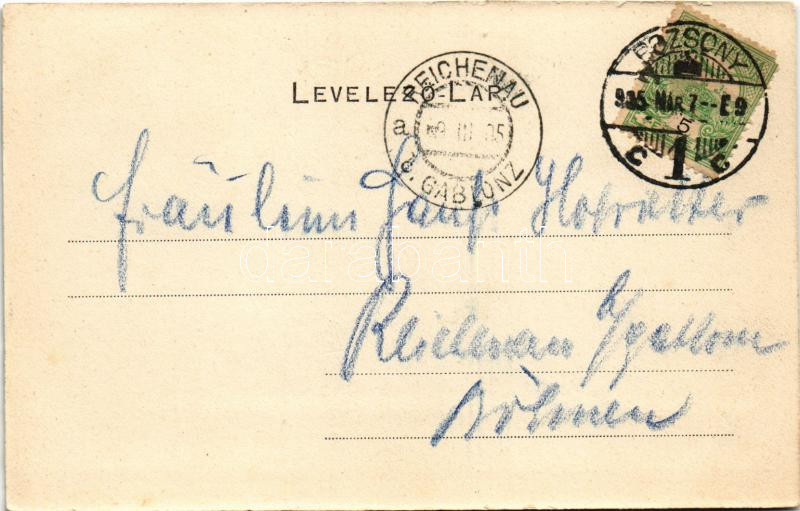 LEVELEZŐ-LAP
POZSONY
905 MÁR 7--E9
5
1
REICHENAU
a 9 III 05
b. GABLONZ
Fräulein Hofrätter
darabanth
Reichenau b/Gablonz
Böhmen